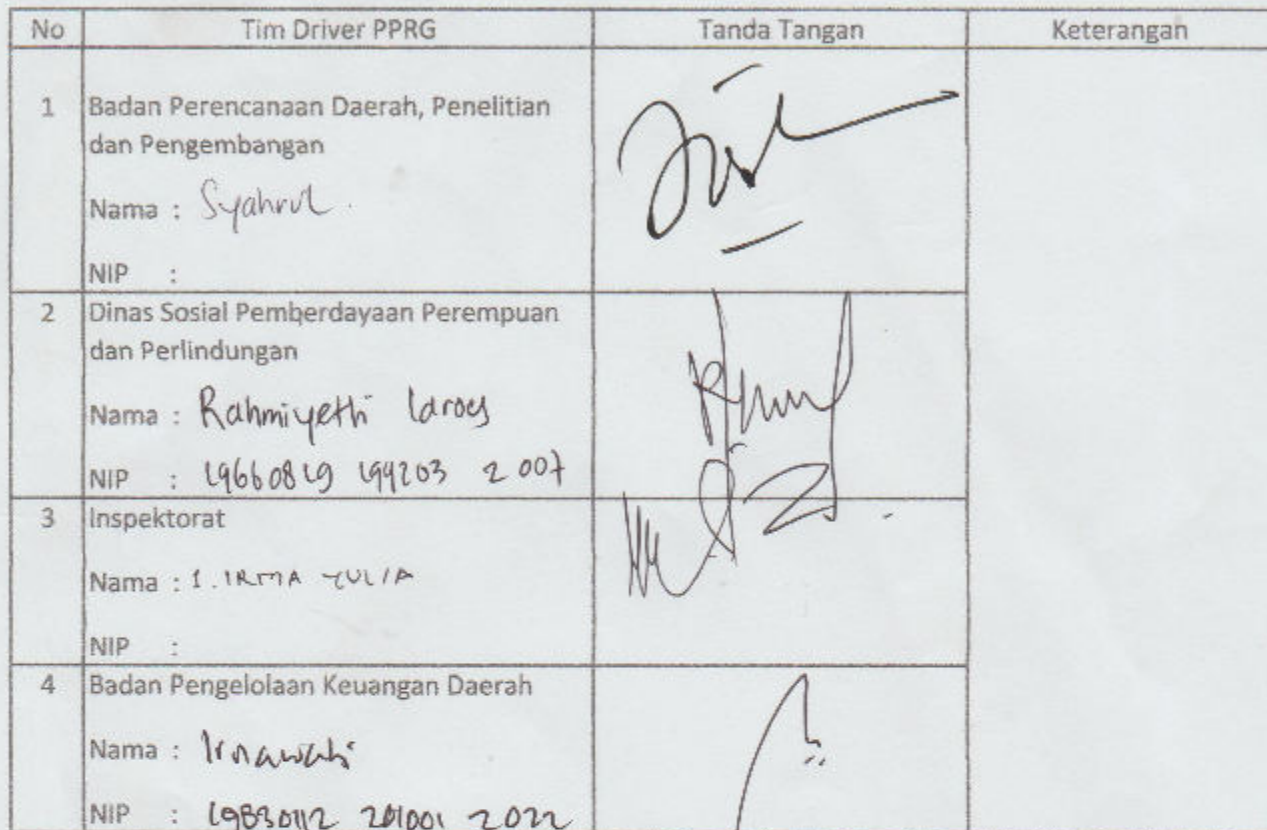 No Tim Driver PPRG Tanda Tangan Keterangan
1 Badan Perencanaan Daerah, Penelitian
dan Pengembangan
Nama : Syahrul.
NIP :
2 Dinas Sosial Pemberdayaan Perempuan
dan Perlindungan
Nama : Rahmiyetti Idroes
NIP : 19660819 199203 2 007
3 Inspektorat
Nama : 1. IRMA YULIA
NIP :
4 Badan Pengelolaan Keuangan Daerah
Nama : Irnawati
NIP : 19830112 201001 2022